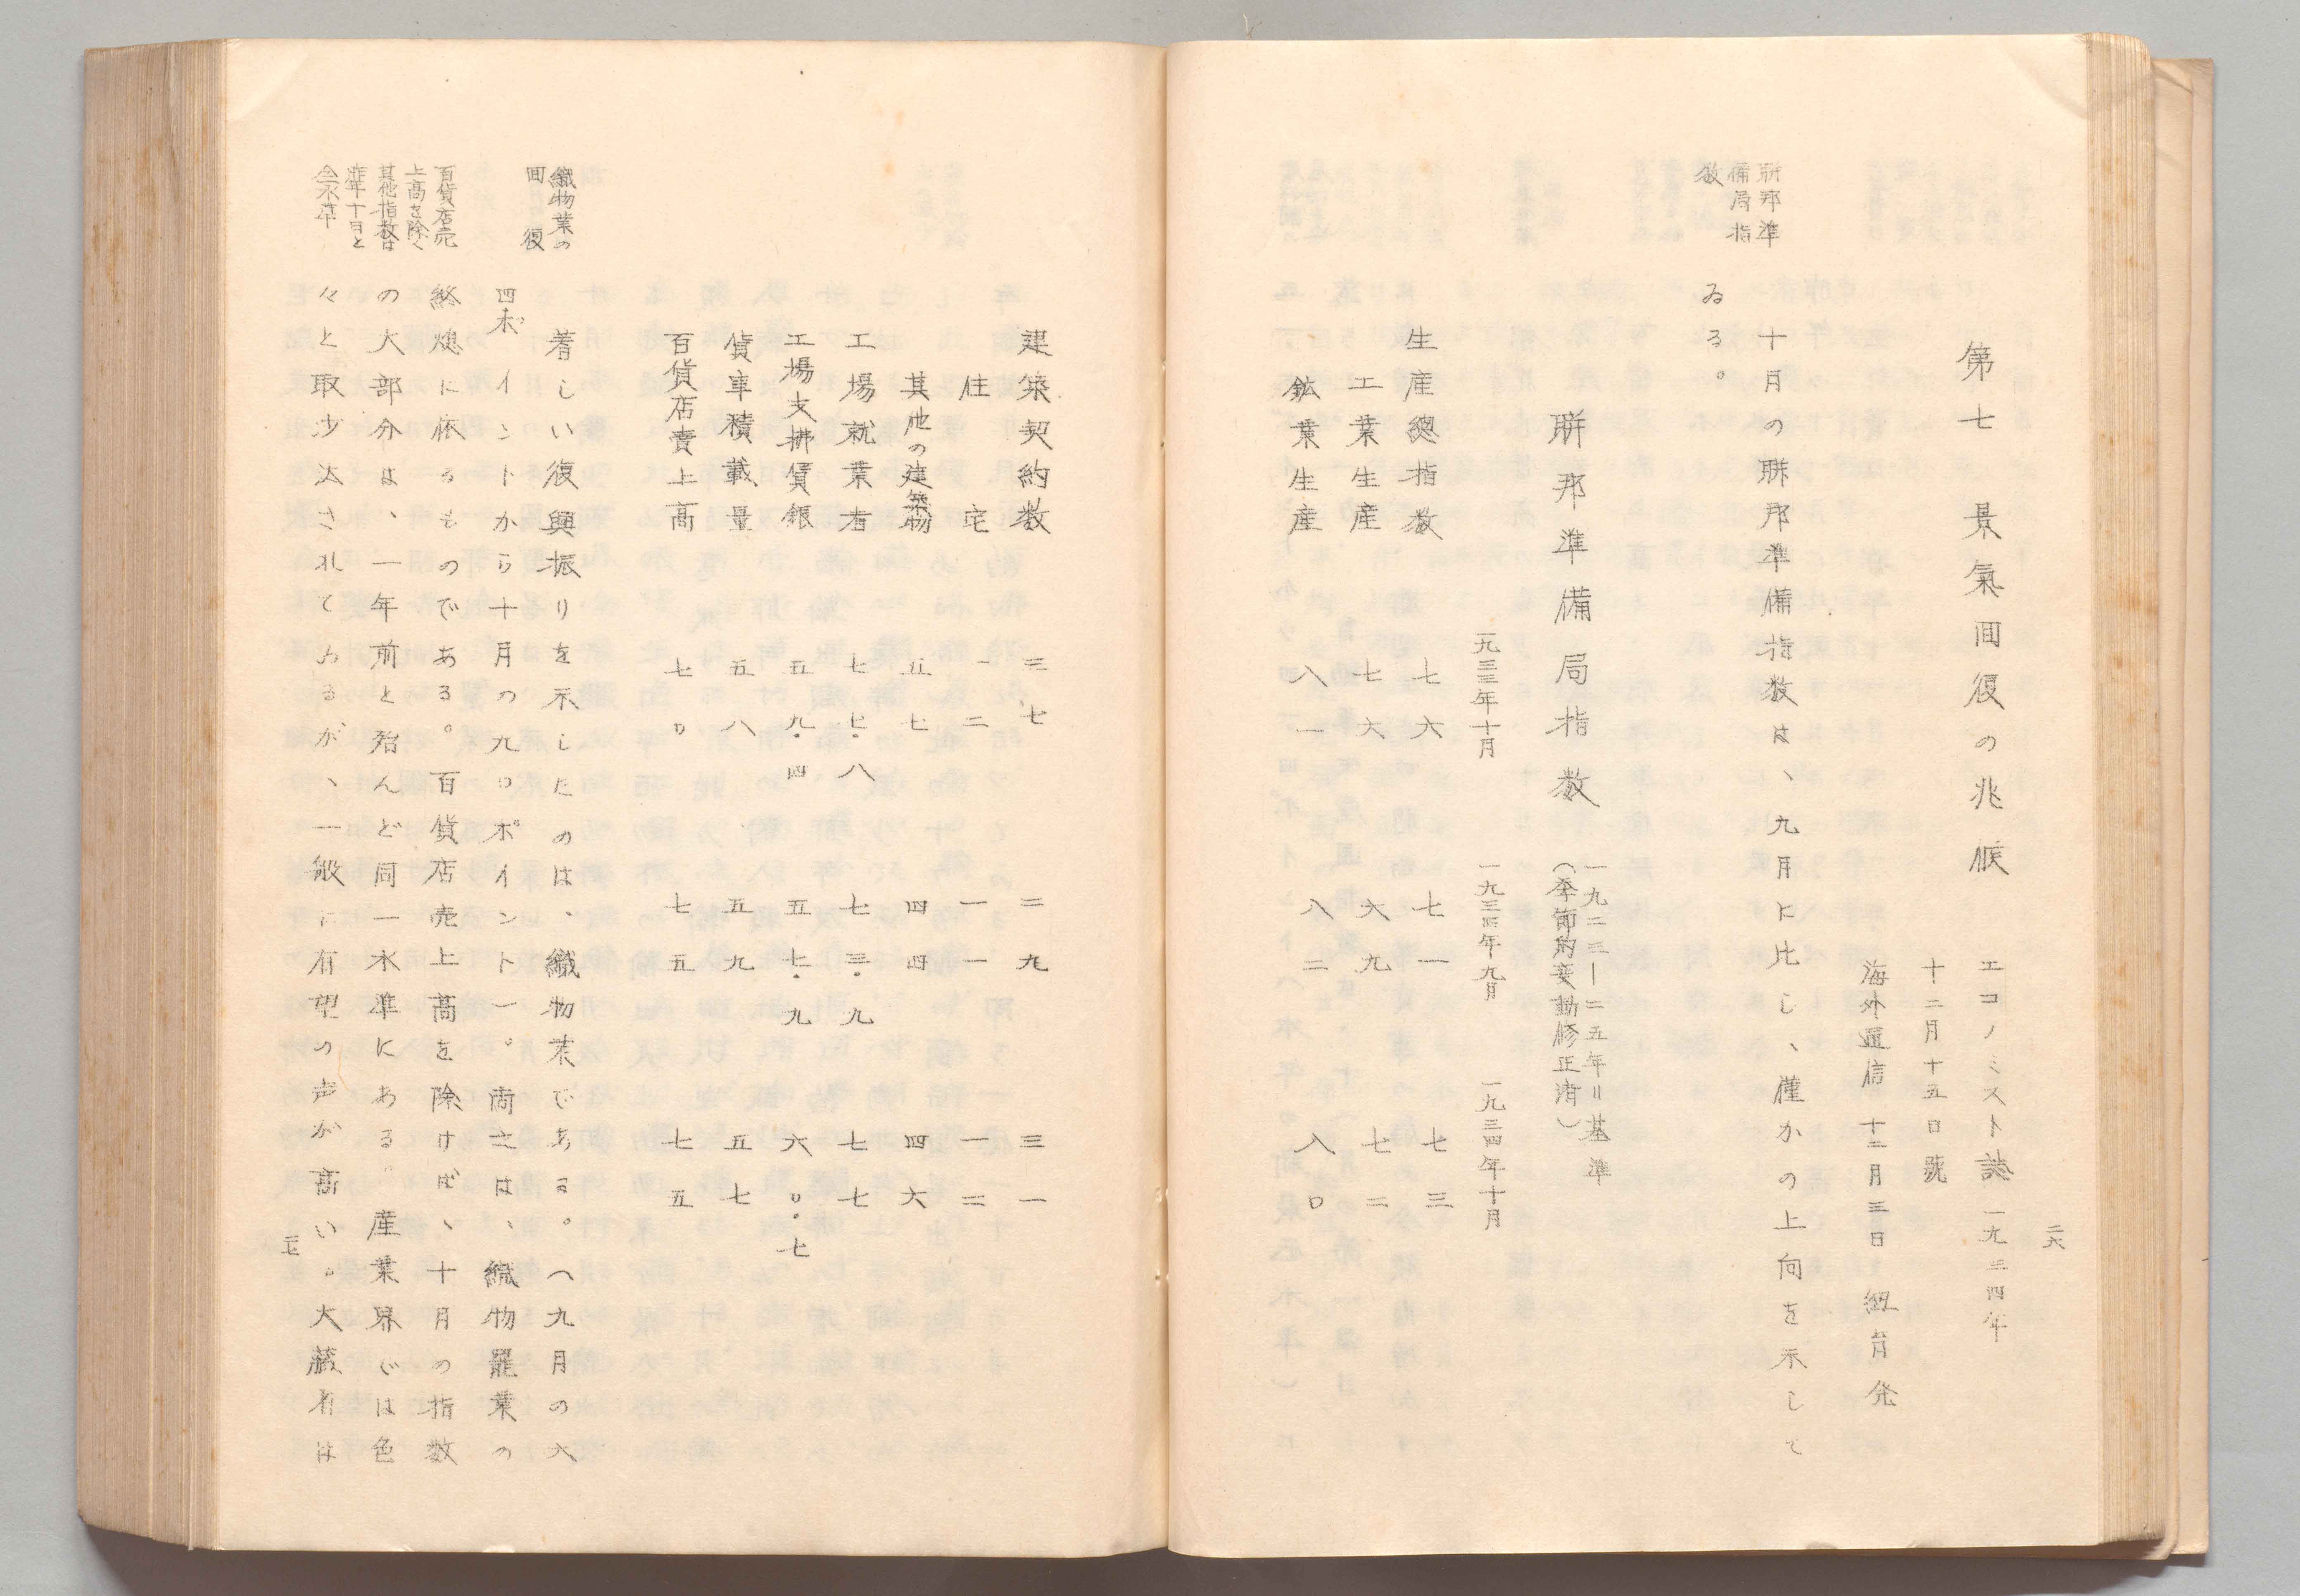 二六
第七　景氣囘復の兆候
エコノミスト誌　一九三四年
十二月十五日號
海外通信　十二月三日　紐育発
聯邦準
備局指
数
十月の聯邦準備指数は、九月に比し、僅かの上向を示して
ゐる。
聯邦準備局指数
一九二三―二五年＝基準
（季節的変動修正済）
一九三三年十月　一九三四年九月　一九三四年十月
生産總指数　七六　七一　七三
工業生産　七六　六九　七二
鉱業生産　八一　八二　八〇
建築契約数　三七　二九　三一
住宅　一二　一一　一二
其他の建築物　五七　四四　四六
工場就業者　七七・八　七三・九　七七
工場支拂賃銀　五九・四　五七・九　六〇・七
貨車積載量　五八　五九　五七
百貨店賣上高　七〇　七五　七五
織物業の
囘復
著しい復興振りを示したのは、織物業である。（九月の六
四ポイントから十月の九〇ポイント）。両之は、織物罷業の
百貨店売
上高を除く
其他指数は
昨年十月と
仝水準
終熄に依るものである。百貨店売上高を除けば、十月の指数
の大部分は、一年前と殆んど同一水準にある。産業界では色
々と取沙汰されてゐるが、一般に有望の声が高い。大蔵省は
二七